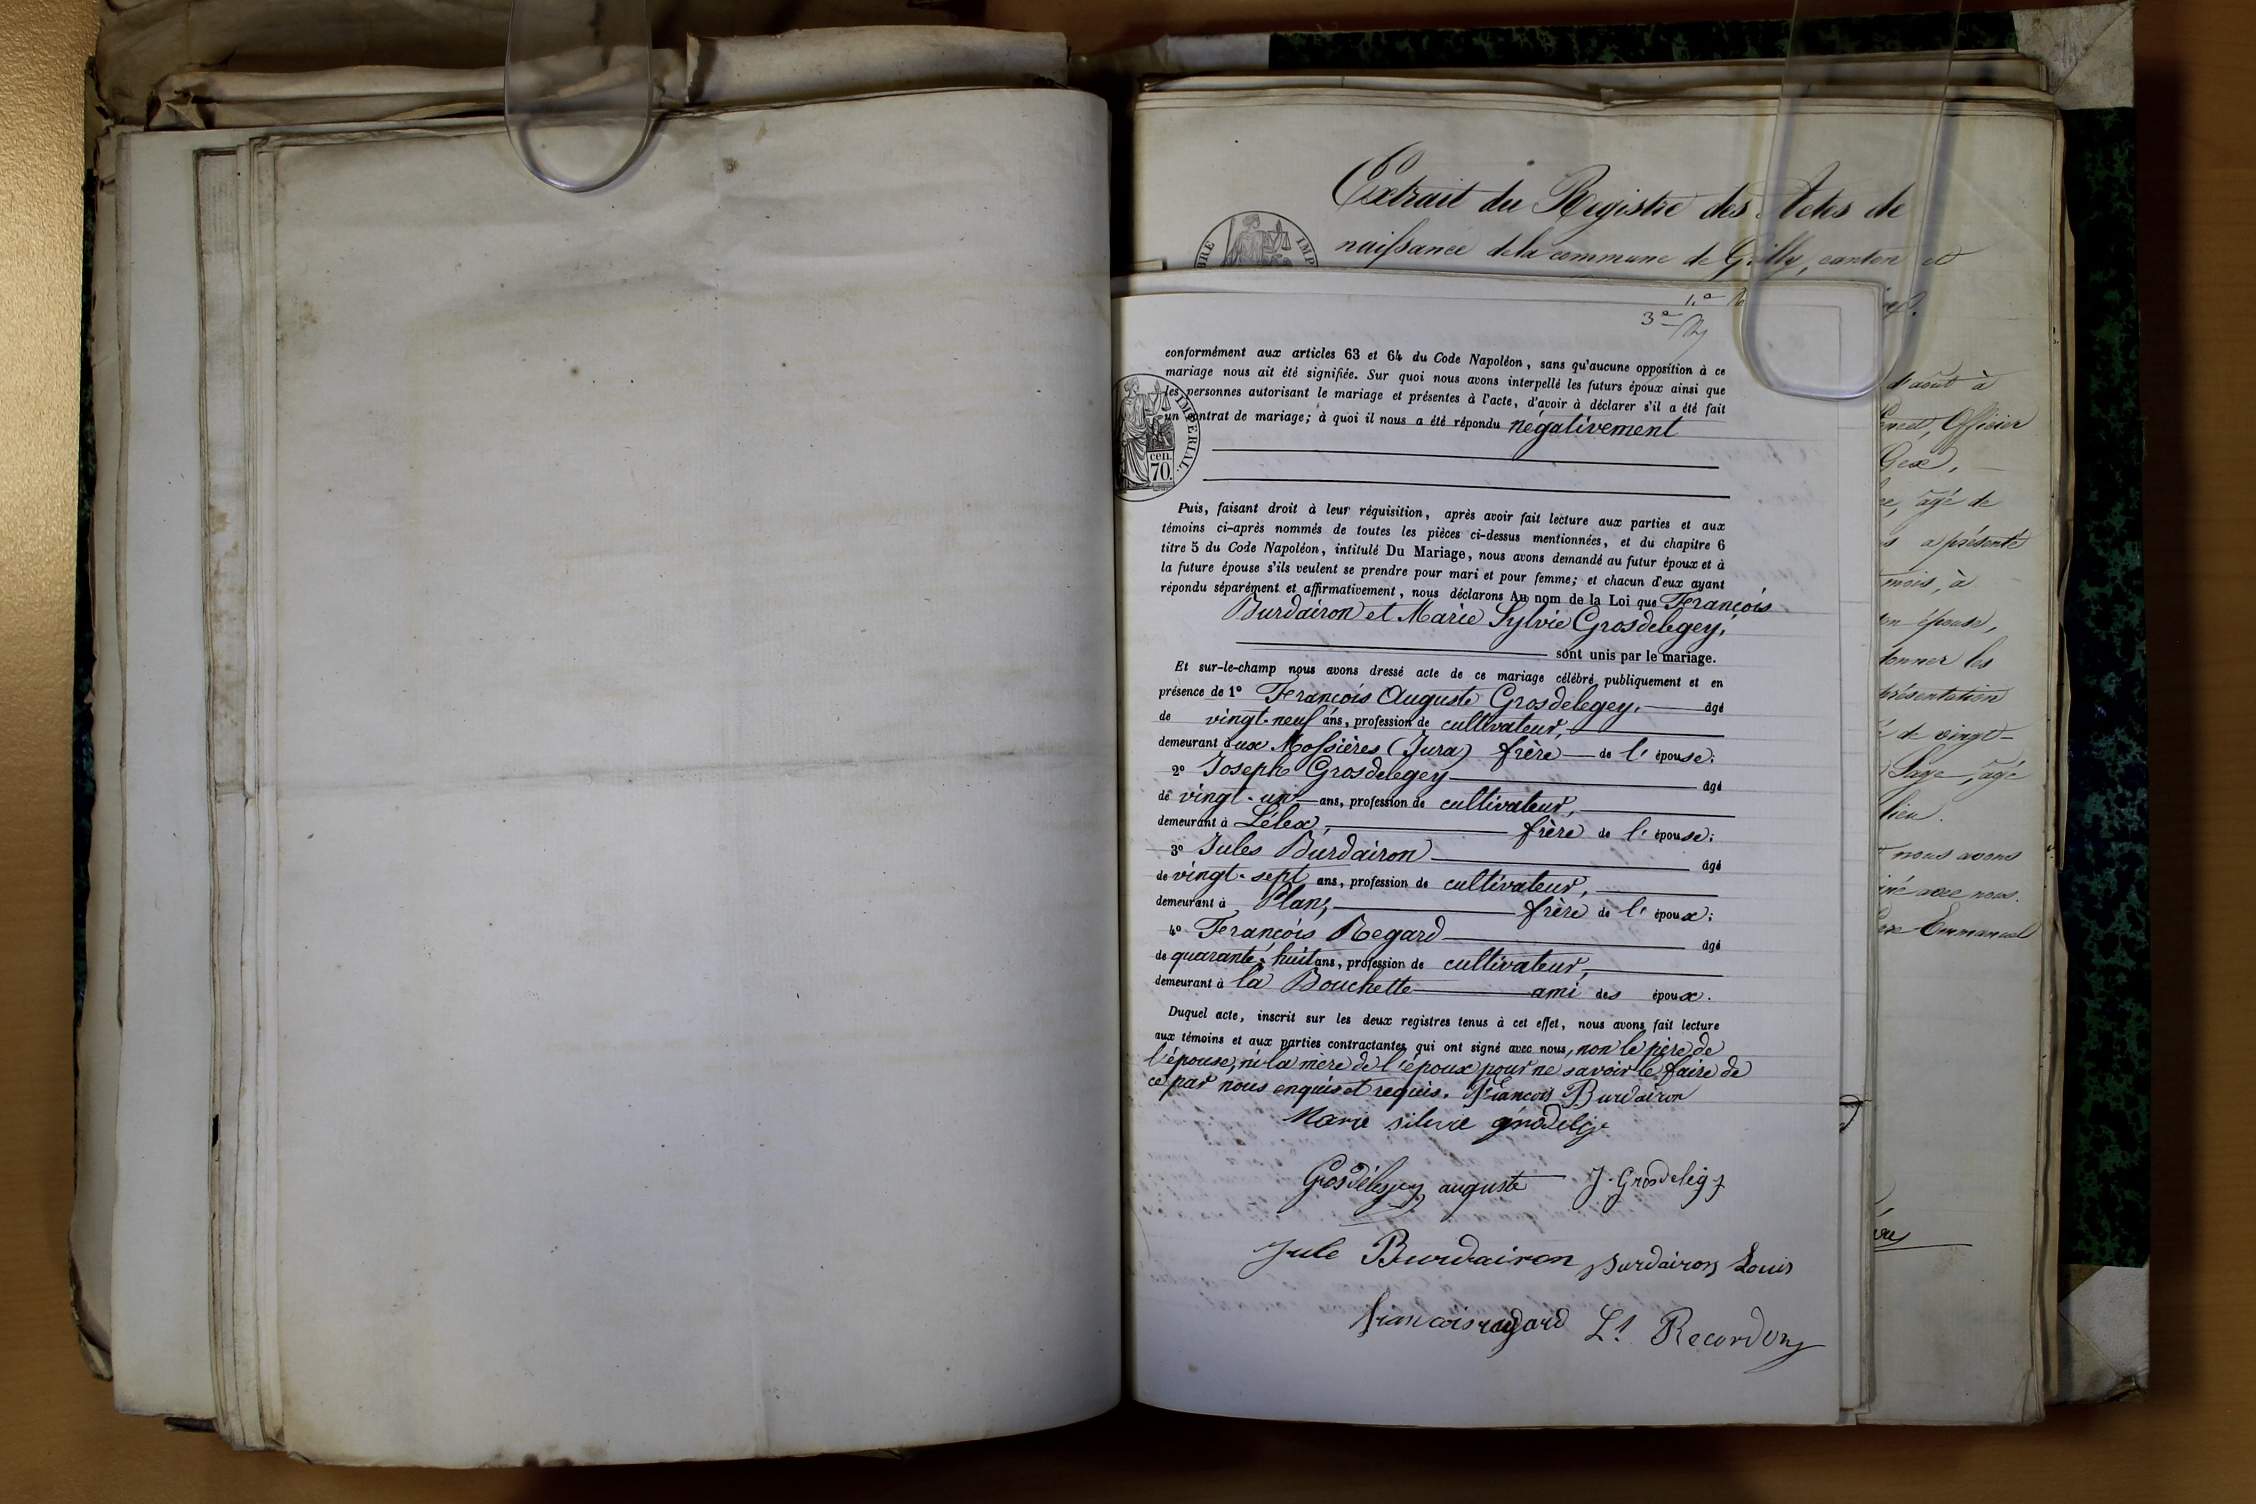 Extrait du Registre des Actes de
naissance de la commune de Grilly, canton et
BRE IMP
1.º
3º
conformément aux articles 63 et 64 du Code Napoléon, sans qu'aucune opposition à ce
mariage nous ait été signifiée. Sur quoi nous avons interpellé les futurs époux ainsi que
les personnes autorisant le mariage et présentes à l'acte, d'avoir à déclarer s'il a été fait
un contrat de mariage; à quoi il nous a été répondu négativement
IMPERIAL.
cen.
70.
Puis, faisant droit à leur réquisition, après avoir fait lecture aux parties et aux
témoins ci-après nommés de toutes les pièces ci-dessus mentionnées, et du chapitre 6
titre 5 du Code Napoléon, intitulé Du Mariage, nous avons demandé au futur époux et à
la future épouse s'ils veulent se prendre pour mari et pour femme; et chacun d'eux ayant
répondu séparément et affirmativement, nous déclarons Au nom de la Loi que François
Burdairon et Marie Sylvie Grosdelegey,
sont unis par le mariage.
Et sur-le-champ nous avons dressé acte de ce mariage célébré publiquement et en
présence de 1º François Auguste Grosdelegey, âgé
de vingt-neuf ans, profession de cultivateur,
demeurant aux Mossières (Jura) frère de l'épouse;
2º Joseph Grosdelegey âgé
de vingt-un ans, profession de cultivateur,
demeurant à Lélex, frère de l'épouse;
3º Jules Burdairon âgé
de vingt-sept ans, profession de cultivateur,
demeurant à Plans, frère de l'époux;
4º François Regard âgé
de quarante-huit ans, profession de cultivateur,
demeurant à la Bouchette ami des époux.
Duquel acte, inscrit sur les deux registres tenus à cet effet, nous avons fait lecture
aux témoins et aux parties contractantes qui ont signé avec nous, non le père de
l'épouse, ni la mère de l'époux pour ne savoir le faire de
ce par nous enquis et requis. François Burdairon
Marie silvie grosdelege
Grosdelegey auguste J. Grosdelegey
Jule Burdairon Burdairon Louis
francois regard Lˢ Recordon
d'août à
Officier
Gex,
âgé de
a présenté
mois, à
épouse,
donner les
présentation
de vingt-
Sage, âgé
lieu.
nous avons
avec nous.
Emmanuel